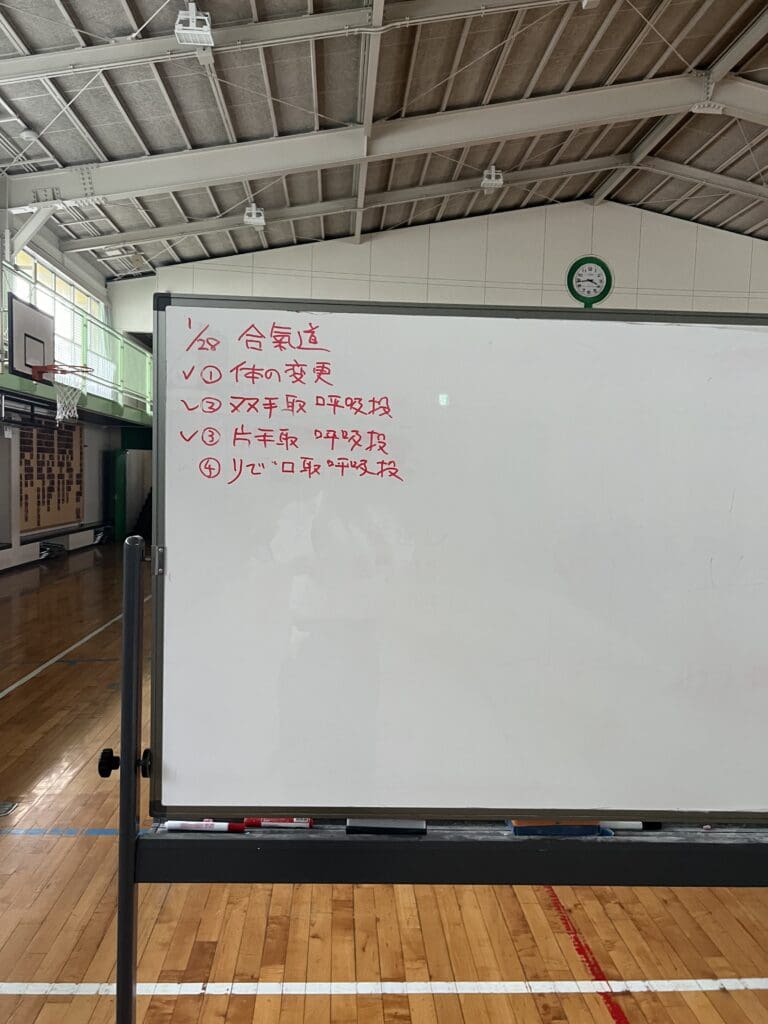 1/28 合氣道
✓① 体の変更
✓② 双手取 呼吸投
✓③ 片手取 呼吸投
④ そで口取呼吸投